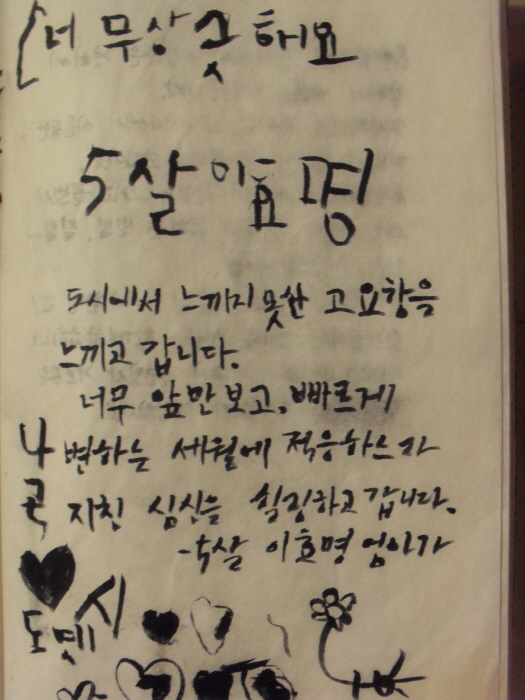 너 무상 굿 해요
5살 이효명
도시에서 느끼지 못한 고요함을
느끼고 갑니다.
너무 앞만 보고, 빠르게
변하는 세월에 적응하느라
지친 심신을 힐링하고 갑니다.
-5살 이효명 엄마가